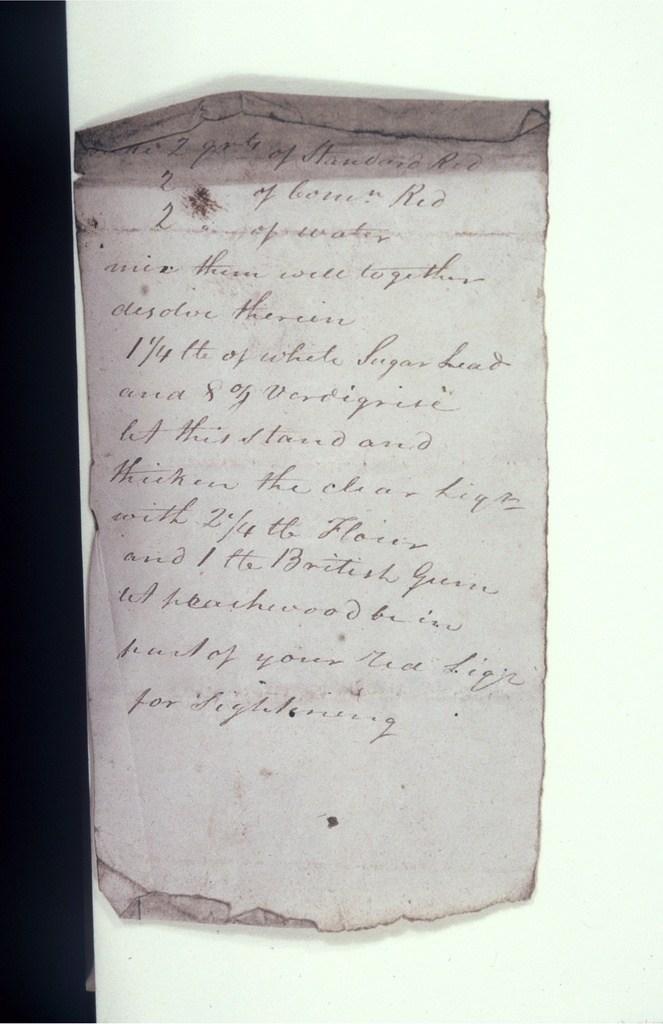 2 qrts of Standard Red
2 of Comn Red
2 " of water
mix them well together
desolve therein
1 1/4 lb of white Sugar Lead
and 8 oz Verdigrise
let this stand and
thicken the clear Liqr
with 2 1/4 lb Flour
and 1 lb British Gum
let peachwood be in
part of your red Liqr
for Sightening